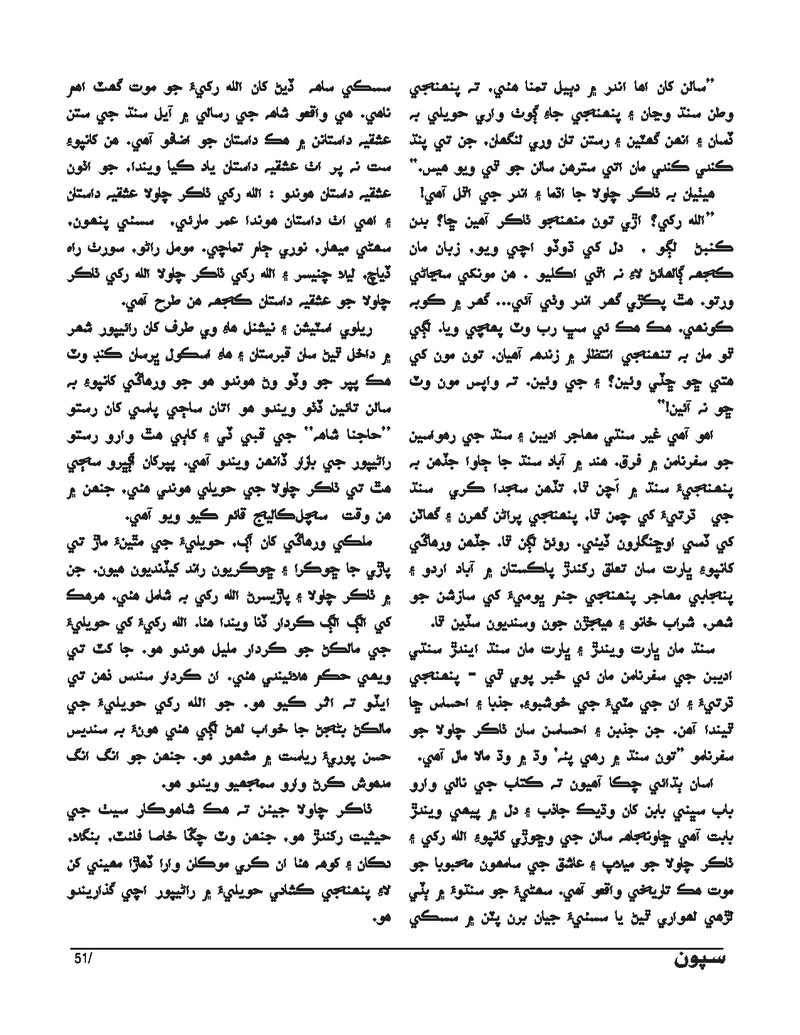 ”سالن کان اها اندر ۾ دٻيل تمنا هئي، ته پنهنجي
وطن سنڌ وڃان ۽ پنهنجي جاءِ ڳوٺ واري حويلي به
ڏسان ۽ انهن گهٽين ۽ رستن تان وري لنگهان، جن تي پنڌ
ڪندي ڪندي مان اتي سترهن سالن جو ٿي ويو هيس.“
هيٺيان به ٺاڪر چاولا جا اڌما ۽ اندر جي اٿل آهي!
”الله رکي؟ اڙي تون منهنجو ٺاڪر آهين ڇا؟ بدن
ڪنبڻ لڳو ، دل کي ڌوڏو اچي ويو، زبان مان
ڪجهه ڳالهائڻ لاءِ نه اٿي اڪليو . هن مونکي سڃاڻي
ورتو، هٿ پڪڙي گهر اندر وٺي آئي... گهر ۾ ڪوبه
ڪونهي. هڪ هڪ ٿي سڀ رب وٽ پهچي ويا. لڳي
ٿو مان به تنهنجي انتظار ۾ زندهه آهيان. تون مون کي
هتي ڇو ڇڏي وئين؟ ۽ جي وئين. ته واپس مون وٽ
ڇو نه آئين!“
اهو آهي غير سنڌي مهاجر اديبن ۽ سنڌ جي رهواسين
جو سفرنامن ۾ فرق. هند ۾ آباد سنڌ جا ڄاوا جڏهن به
پنهنجيءَ سنڌ ۾ اَچن ٿا، تڏهن سجدا ڪري سنڌ
جي ڌرتيءَ کي چمن ٿا، پنهنجي پراڻن گهرن ۽ گهاٽن
کي ڏسي اوڇنگارون ڏيئي، روئڻ لڳن ٿا. جڏهن ورهاڱي
کانپوءِ ڀارت سان تعلق رکندڙ پاڪستان ۾ آباد اردو ۽
پنجابي مهاجر پنهنجي جنم ڀوميءَ کي سازشن جو
شهر، شراب خانو ۽ هيجڙن جون وسنديون سڏين ٿا.
سنڌ مان ڀارت ويندڙ ۽ ڀارت مان سنڌ ايندڙ سنڌي
اديبن جي سفرنامن مان ئي خبر پوي ٿي - پنهنجي
ڌرتيءَ ۽ ان جي مٽيءَ جي خوشبوءِ، جذبا ۽ احساس ڇا
ٿيندا آهن. جن جذبن ۽ احساسن سان ٺاڪر چاولا جو
سفرنامو ”تون سنڌ ۾ رهي پئہ‘ وڌ ۾ وڌ مالا مال آهي.
اسان ٻڌائي چڪا آهيون ته ڪتاب جي نالي وارو
باب سڀني بابن کان وڌيڪ جاذب ۽ دل ۾ پيهي ويندڙ
بابت آهي ڇاونجاهه سالن جي وڇوڙي کانپوءِ الله رکي ۽
ٺاڪر چاولا جو ميلاپ ۽ عاشق جي سامهون محبوبا جو
موت هڪ تاريخي واقعو آهي. سهڻيءَ جو سنڌوءَ ۾ ٻڏي
لڙهي لهواري ٿيڻ يا سسئيءَ جيان برن پٽن ۾ سسڪي
سسڪي ساهه ڏيڻ کان الله رکيءَ جو موت گهٽ اهم
ناهي. هي واقعو شاهه جي رسالي ۾ آيل سنڌ جي ستن
عشقيه داستانن ۾ هڪ داستان جو اضافو آهي. هن کانپوءِ
ست نه پر اٺ عشقيه داستان ياد ڪيا ويندا، جو اٺون
عشقيه داستان هوندو : الله رکي ٺاڪر چاولا عشقيه داستان
۽ اهي اٺ داستان هوندا عمر مارئي، سسئي پنهون،
سهڻي ميهار، نوري ڄام تماچي، مومل راڻو، سورٺ راءِ
ڏياچ، ليلا چنيسر ۽ الله رکي ٺاڪر چاولا الله رکي ٺاڪر
چاولا جو عشقيه داستان ڪجهه هن طرح آهي.
ريلوي اسٽيشن ۽ نيشنل هاءِ وي طرف کان راڻيپور شهر
۾ داخل ٿيڻ سان قبرستان ۽ هاءِ اسڪول ڀرسان ڪنڊ وٽ
هڪ پپر جو وڏو وڻ هوندو هو جو ورهاڱي کانپوءِ به
سالن تائين ڏٺو ويندو هو اتان ساڄي پاسي کان رستو
’’حاجنا شاهہ‘‘ جي قبي ٿي ۽ کاٻي هٿ وارو رستو
راڻيپور جي بازار ڏانهن ويندو آهي. پپرکان ٿورو سڄي
هٿ تي ٺاڪر چاولا جي حويلي هوندي هئي، جنهن ۾
هن وقت سچل ڪاليج قائم ڪيو ويو آهي.
ملڪي ورهاڱي کان اڳ، حويليءَ جي مٿينءَ ماڙ تي
پاڙي جا ڇوڪرا ۽ ڇوڪريون راند کيڏنديون هيون. جن
۾ ٺاڪر چاولا ۽ پاڙيسرڻ الله رکي به شامل هئي. هرهڪ
کي الڳ الڳ ڪردار ڏنا ويندا هئا. الله رکيءَ کي حويليءَ
جي مالڪڻ جو ڪردار مليل هوندو هو. جا کٽ تي
ويهي حڪم هلائيندي هئي. ان ڪردار سندس ذهن تي
ايڏو ته اثر ڪيو هو. جو الله رکي حويليءَ جي
مالڪڻ بڻجڻ جا خواب لهڻ لڳي هئي هونءَ به سنديس
حسن پوريءَ رياست ۾ مشهور هو. جنهن جو انگ انگ
مدهوش ڪرڻ وارو سمجهيو ويندو هو.
ٺاڪر چاولا جيئن ته هڪ شاهوڪار سيٺ جي
حيثيت رکندڙ هو، جنهن وٽ چڱا خاصا فلئٽ، بنگلا،
دڪان ۽ کوهه هئا ان ڪري موڪلن وارا ڏهاڙا مهيني کن
لاءِ پنهنجي ڪشادي حويليءَ ۾ راڻيپور اچي گذاريندو
هو.
سپون
51/